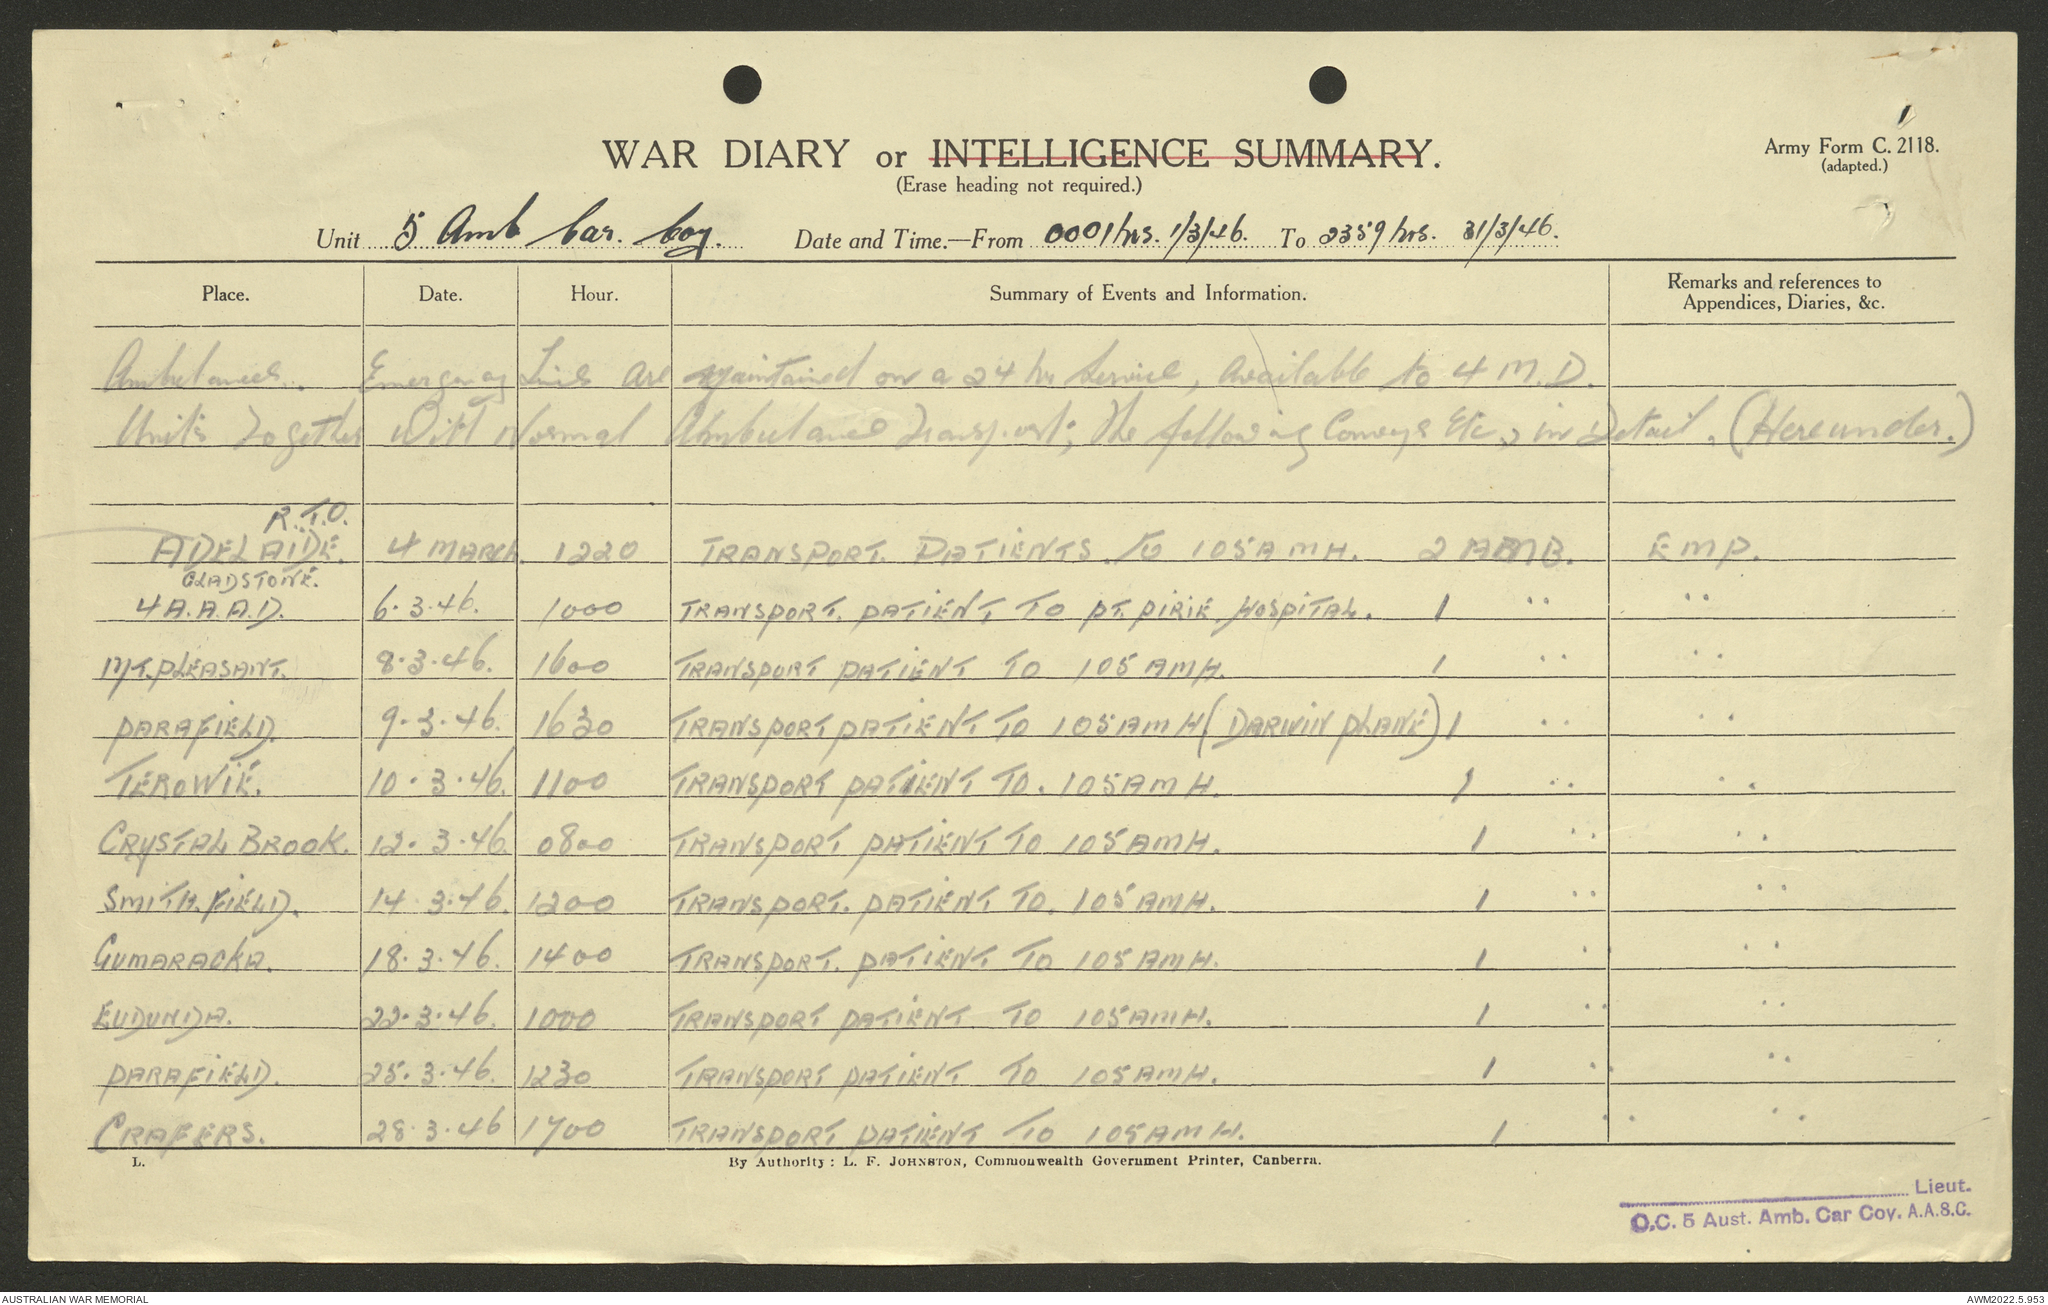 1
WAR DIARY or INTELLIGENCE SUMMARY.
(Erase heading not required.)
Army Form C. 2118.
(adapted.)
Unit 5 Amb Car. Coy. Date and Time.—From 0001hrs. 1/3/46. To 2359 hrs. 31/3/46.
Place. Date. Hour. Summary of Events and Information. Remarks and references to Appendices, Diaries, &c.
Ambulances. Emergency Lines are maintained on a 24 hr Service, available to 4 M.D.
Units Together With Normal Ambulance Transport; The following Convoys Etc, in Detail. (Hereunder.)
R.T.O.
ADELAIDE. 4 MARCH. 1220 TRANSPORT. PATIENTS. TO 105 AMH. 2 AMB. EMP.
GLADSTONE.
4 A.A.A.D. 6.3.46. 1000 TRANSPORT. PATIENT TO PT. PIRIE. HOSPITAL. 1 " "
MT. PLEASANT. 8.3.46. 1600 TRANSPORT PATIENT TO 105 AMH. 1 " "
PARAFIELD. 9.3.46. 1630 TRANSPORT PATIENT TO 105 AMH (DARWIN PLANE) 1 " "
TEROWIE. 10.3.46. 1100 TRANSPORT PATIENT TO. 105 AMH. 1 " "
CRYSTAL BROOK. 12.3.46. 0800 TRANSPORT PATIENT TO 105 AMH. 1 " "
SMITH.FIELD. 14.3.46. 1200 TRANSPORT. PATIENT TO. 105 AMH. 1 " "
GUMARACKA. 18.3.46. 1400 TRANSPORT. PATIENT TO 105 AMH. 1 " "
EUDUNDA. 22.3.46. 1000 TRANSPORT PATIENT TO 105 AMH. 1 " "
PARAFIELD. 25.3.46. 1230 TRANSPORT PATIENT TO 105 AMH. 1 " "
CRAFERS. 28.3.46 1700 TRANSPORT PATIENT TO 105 AMH. 1 " "
L. By Authority: L. F. JOHNSTON, Commonwealth Government Printer, Canberra.
Lieut.
O.C. 5 Aust. Amb. Car Coy. A.A.S.C.
AUSTRALIAN WAR MEMORIAL AWM2022.5.953